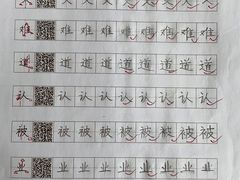 难 难 难 难 难 难 难 难
道 道 道 道 道 道 道 道
认 认 认 认 认 认 认 认
被 被 被 被 被 被 被 被
业 业 业 业 业 业 业 业